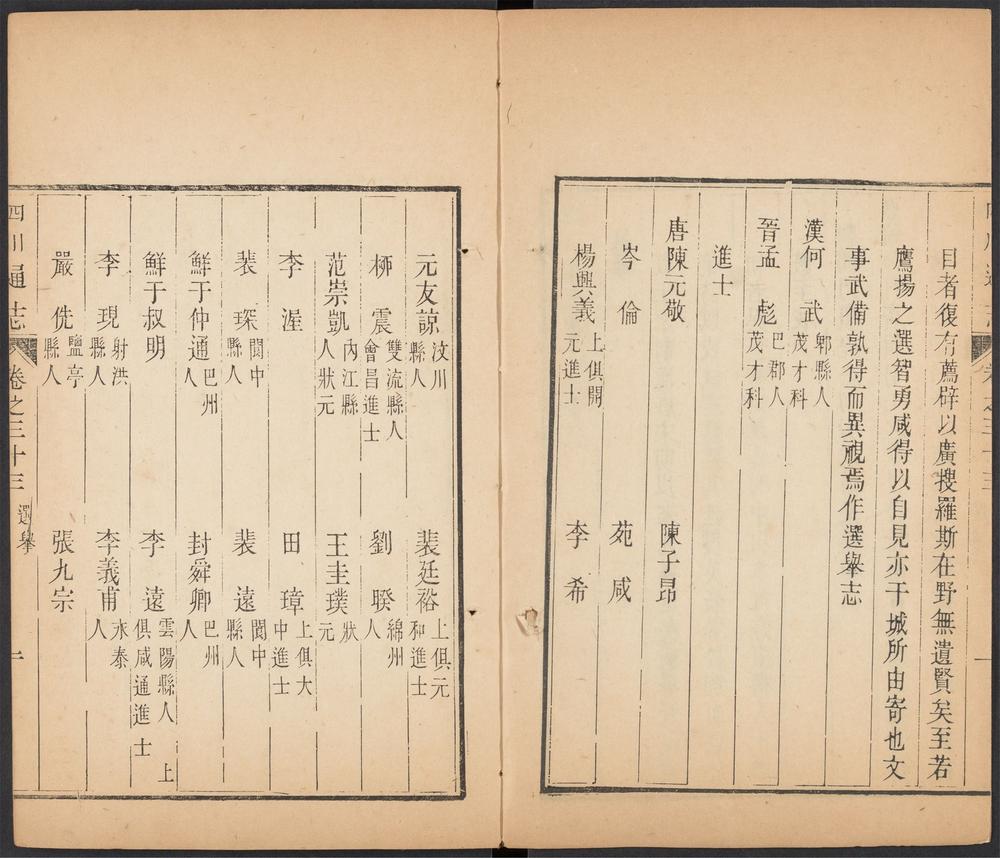 目者復有薦辟以廣搜羅斯在野無遺賢矣至若
鷹揚之選智勇咸得以自見亦干城所由寄也文
事武備孰得而異視焉作選舉志
漢何武 郫縣人茂才科
晉孟彪 巴郡人茂才科
進士
唐陳元敬 陳子昂
岑倫 苑咸
楊興義 上俱開元進士 李希
元友諒 汶川縣人 裴廷裕 上俱元和進士
柳震 雙流縣人會昌進士 劉暌 綿州人
范崇凱 內江縣人狀元 王圭璞 狀元
李渥 田璋 上俱大中進士
裴琛 閬中縣人 裴遠 閬中縣人
鮮于仲通 巴州人 封舜卿 巴州人
鮮于叔明 李遠 雲陽縣人上俱咸通進士
李現 射洪縣人 李義甫 永泰人
嚴侁 鹽亭縣人 張九宗
四川通志 卷之三十三 選舉 一